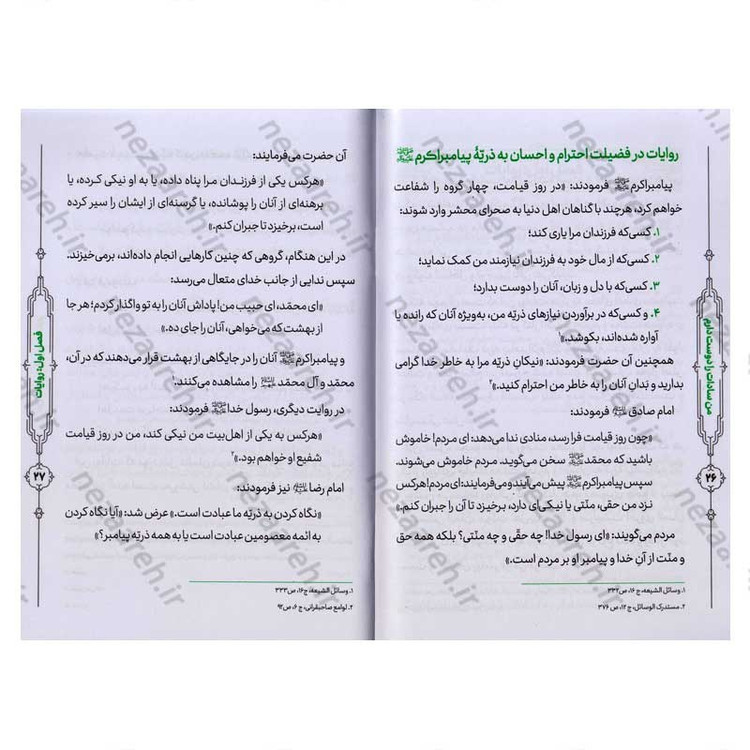 روایات در فضیلت احترام و احسان به ذریّهٔ پیامبراکرم ﷺ
پیامبراکرم ﷺ فرمودند: «در روز قیامت، چهار گروه را شفاعت
خواهم کرد، هرچند با گناهان اهل دنیا به صحرای محشر وارد شوند:
۱. کسی‌که فرزندان مرا یاری کند؛
۲. کسی‌که از مال خود به فرزندان نیازمند من کمک نماید؛
۳. کسی‌که با دل و زبان، آنان را دوست بدارد؛
۴. و کسی‌که در برآوردن نیازهای ذریّه من، به‌ویژه آنان که رانده یا
آواره شده‌اند، بکوشد.»۱
همچنین آن حضرت فرمودند: «نیکانِ ذریّه مرا به خاطر خدا گرامی
بدارید و بَدانِ آنان را به خاطر من احترام کنید.»۲
امام صادق فرمودند:
«چون روز قیامت فرا رسد، منادی ندا می‌دهد: ای مردم! خاموش
باشید که محمّد ﷺ سخن می‌گوید. مردم خاموش می‌شوند.
سپس پیامبراکرم ﷺ پیش می‌آیند و می‌فرمایند: ای مردم! هرکس
نزد من حقی، منّتی یا نیکی‌ای دارد، برخیزد تا آن را جبران کنم.»
مردم می‌گویند: «ای رسول خدا! چه حقّی و چه منّتی؟ بلکه همه حق
و منّت از آنِ خدا و پیامبر او بر مردم است.»
۱. وسائل الشیعه، ج ۱۶، ص۳۳۲
۲. مستدرک الوسائل، ج ۱۲، ص ۳۷۶
من سادات را دوست دارم
۲۶
آن حضرت می‌فرمایند:
«هرکس یکی از فرزندان مرا پناه داده، یا به او نیکی کرده، یا
برهنه‌ای از آنان را پوشانده، یا گرسنه‌ای از ایشان را سیر کرده
است، برخیزد تا جبران کنم.»
در این هنگام، گروهی که چنین کارهایی انجام داده‌اند، برمی‌خیزند.
سپس ندایی از جانب خدای متعال می‌رسد:
«ای محمّد، ای حبیب من! پاداش آنان را به تو واگذار کردم؛ هر جا
از بهشت که می‌خواهی، آنان را جای ده.»
و پیامبراکرم ﷺ آنان را در جایگاهی از بهشت قرار می‌دهند که در آن،
محمّد و آل محمّد را مشاهده می‌کنند.۱
در روایت دیگری، رسول خدا ﷺ فرمودند:
«هرکس به یکی از اهل‌بیت من نیکی کند، من در روز قیامت
شفیع او خواهم بود.»۲
امام رضا نیز فرمودند:
«نگاه کردن به ذریّه ما عبادت است.» عرض شد: «آیا نگاه کردن
به ائمه معصومین عبادت است یا به همه ذریّه پیامبر؟»
۱. وسائل الشیعه، ج۱۶، ص۳۳۳
۲. لوامع صاحبقرانی، ج ۶، ص۹۲
فصل اول: روایات
۲۷
nezaareh.ir
nezaareh.ir
nezaareh.ir
nezaareh.ir
nezaareh.ir
nezaareh.ir